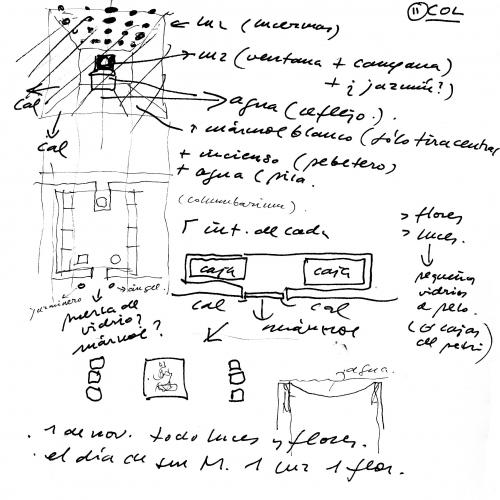 ⑪ COL
luz (invernos)
luz (ventana + campana)
+ ¿jazmín?)
cal
agua (reflejo).
cal
mármol blanco (sólo tira central
+ incienso (pebetero)
+ agua (pila.
(columbarium).
int. de cada
> flores
> luces.
caja caja
pequeños
vidrios
a pelo.
(ó cajas
de petri)
cal cal
mármol
jazminero
ángel
puerta de
vidrio?
mármol?
agua.
. 1 de nov. todo luces y flores.
. el día de su M. 1 luz 1 flor.